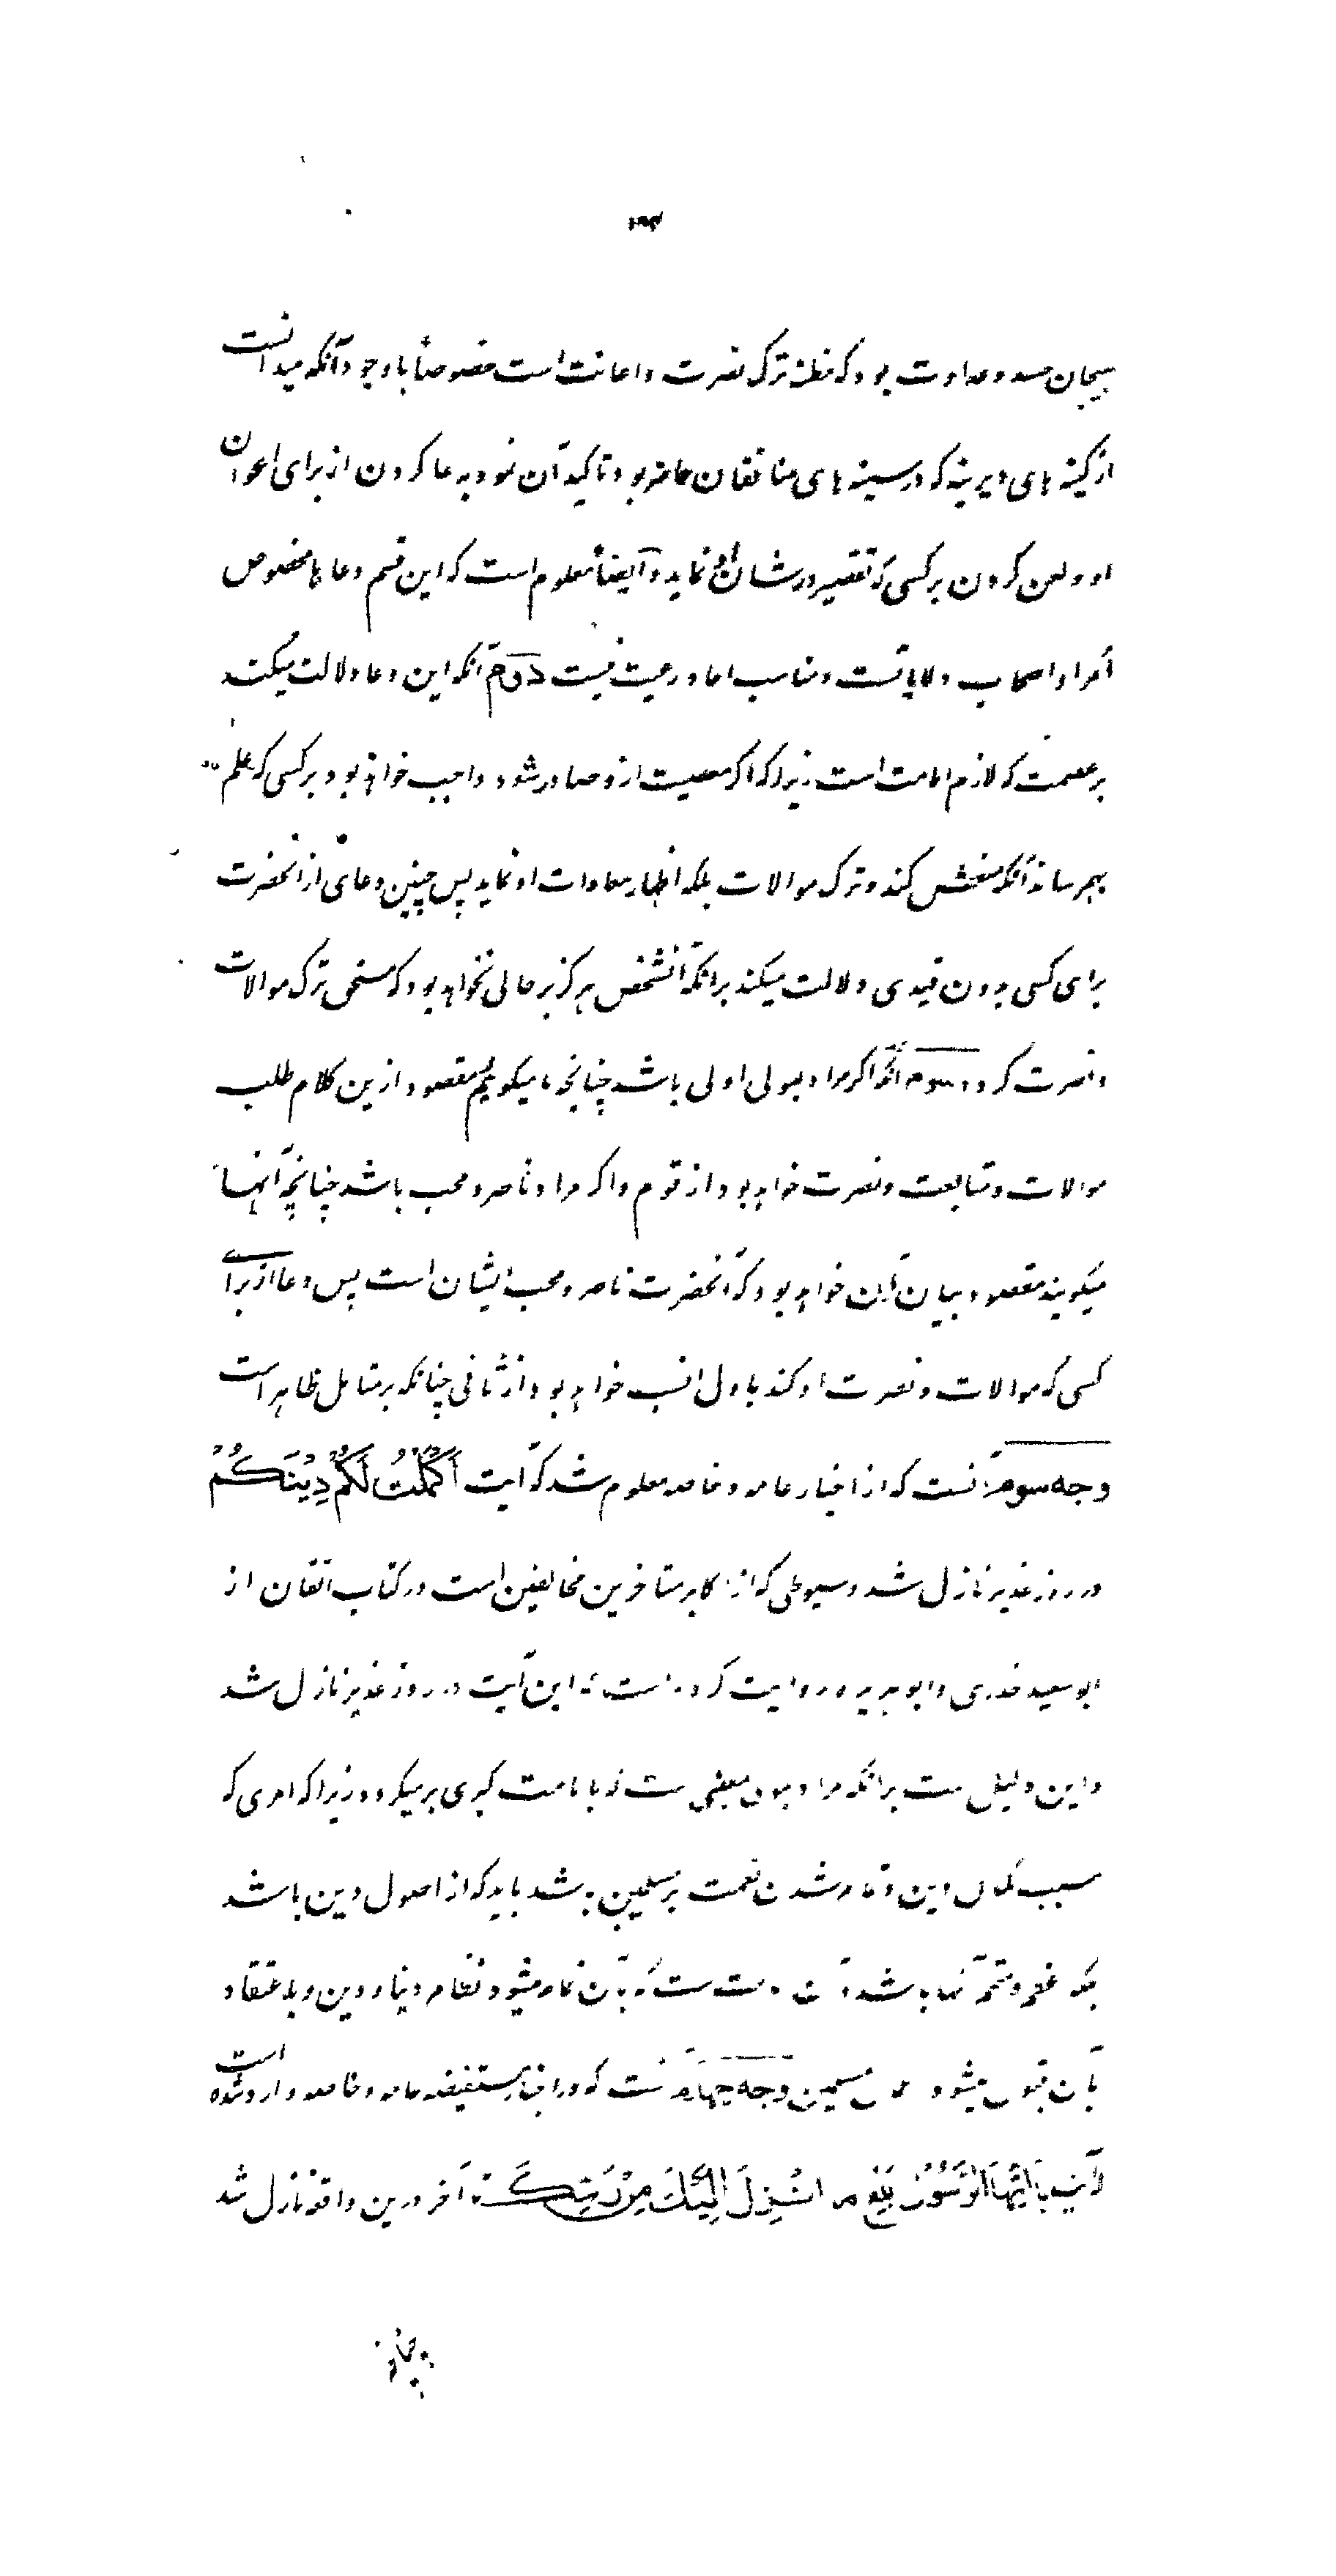 هیجان حسد و عداوت بود که مظنه ترک نصرت و اعانت است خصوصاً با وجود آنکه میدانست
از کینه های دیرینه که در سینه های منافقان حاضر بود تاکید آن نمود به دعا کردن از برای اعوان
او و لعن کردن بر کسی که تقصیر در شان او نماید و ایضاً معلوم است که این قسم دعا ها مخصوص
امرا و اصحاب ولایاتست و مناسب احاد رعیت نیست دوم آنکه این دعا دلالت میکند
بر عصمت که لازم امامت است زیرا که اگر معصیت ازو صادر شود واجب خواهد بود بر کسی که علم
بهم رساند آنکه منعش کند و ترک موالات بلکه اظهار معادات او نماید پس چنین دعای از آنحضرت
برای کسی بدون قیدی دلالت میکند بر آنکه آنشخص هرگز بر حالی نخواهد بود که مستحق ترک موالات
و نصرت گردد سوم آنکه اگر مراد بمولی اولی باشد چنانچه ما میگوئیم مقصود ازین کلام طلب
موالات و متابعت و نصرت خواهد بود از قوم و اگر مراد ناصر و محب باشد چنانچه آنها
میگویند مقصود بیان این خواهد بود که آنحضرت ناصر و محب ایشان است پس دعا از برای
کسی که موالات و نصرت او کند باول انسب خواهد بود از ثانی چنانکه بر متامل ظاهر است
وجه سوم آنست که از اخبار عامه و خاصه معلوم شد که آیت اَکْمَلْتُ لَکُمْ دِیْنَکُمْ
در روز غدیر نازل شد و سیوطی که از اکابر متاخرین مخالفین است در کتاب اتقان از
ابو سعید خدری و ابو هریره روایت کرده است که این آیت در روز غدیر نازل شد
و این دلیل ست بر آنکه مراد بمولی معنی ست که بامامت کبری بر میگردد زیرا که امری که
سبب کمال دین و تمام شدن نعمت بر مسلمین باشد باید که از اصول دین باشد
بلکه اعظم و متمم آنها باشد آن امامت ست که بآن تمام میشود نظام دنیا و دین و باعتقاد
بآن قبول میشود اعمال مسلمین وجه چهارم آنست که در اخبار مستفیضه عامه و خاصه وارد شده است
که آیت یَا اَیُّهَا الرَّسُوْلُ بَلِّغْ مَا اُنْزِلَ اِلَیْکَ مِنْ رَبِّکَ تا آخر درین واقعه نازل شد
چنانچه